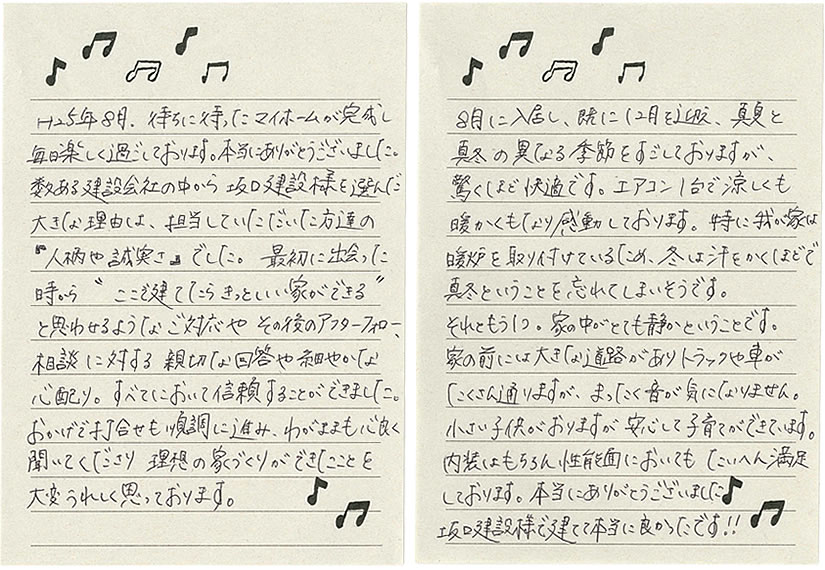 H25年8月、待ちに待ったマイホームが完成し
毎日楽しく過ごしております。本当にありがとうございました。
数ある建設会社の中から 坂口建設様を選んだ
大きな理由は、担当していただいた方達の
『人柄や誠実さ』でした。 最初に出会った
時から〝ここで建てたらきっといい家ができる〟
と思わせるようなご対応や その後のアフターフォロー、
相談に対する 親切な回答や細やかな
心配り。すべてにおいて信頼することができました。
おかげで打合せも順調に進み、わがままも心良く
聞いてくださり 理想の家づくりができたことを
大変うれしく思っております。
8月に入居し、既に12月を迎え、真夏と
真冬の異なる季節をすごしておりますが、
驚くほど快適です。エアコン1台で涼しくも
暖かくもなり感動しております。特に我が家は
暖炉を取り付けているため、冬は汗をかくほどで
真冬ということを忘れてしまいそうです。
それともう1つ。家の中がとても静かということです。
家の前には大きな道路がありトラックや車が
たくさん通りますが、まったく音が気になりません。
小さい子供がおりますが 安心して子育てができています。
内装はもちろん性能面においても たいへん満足
しております。本当にありがとうございました
坂口建設様で建てて本当に良かったです!!